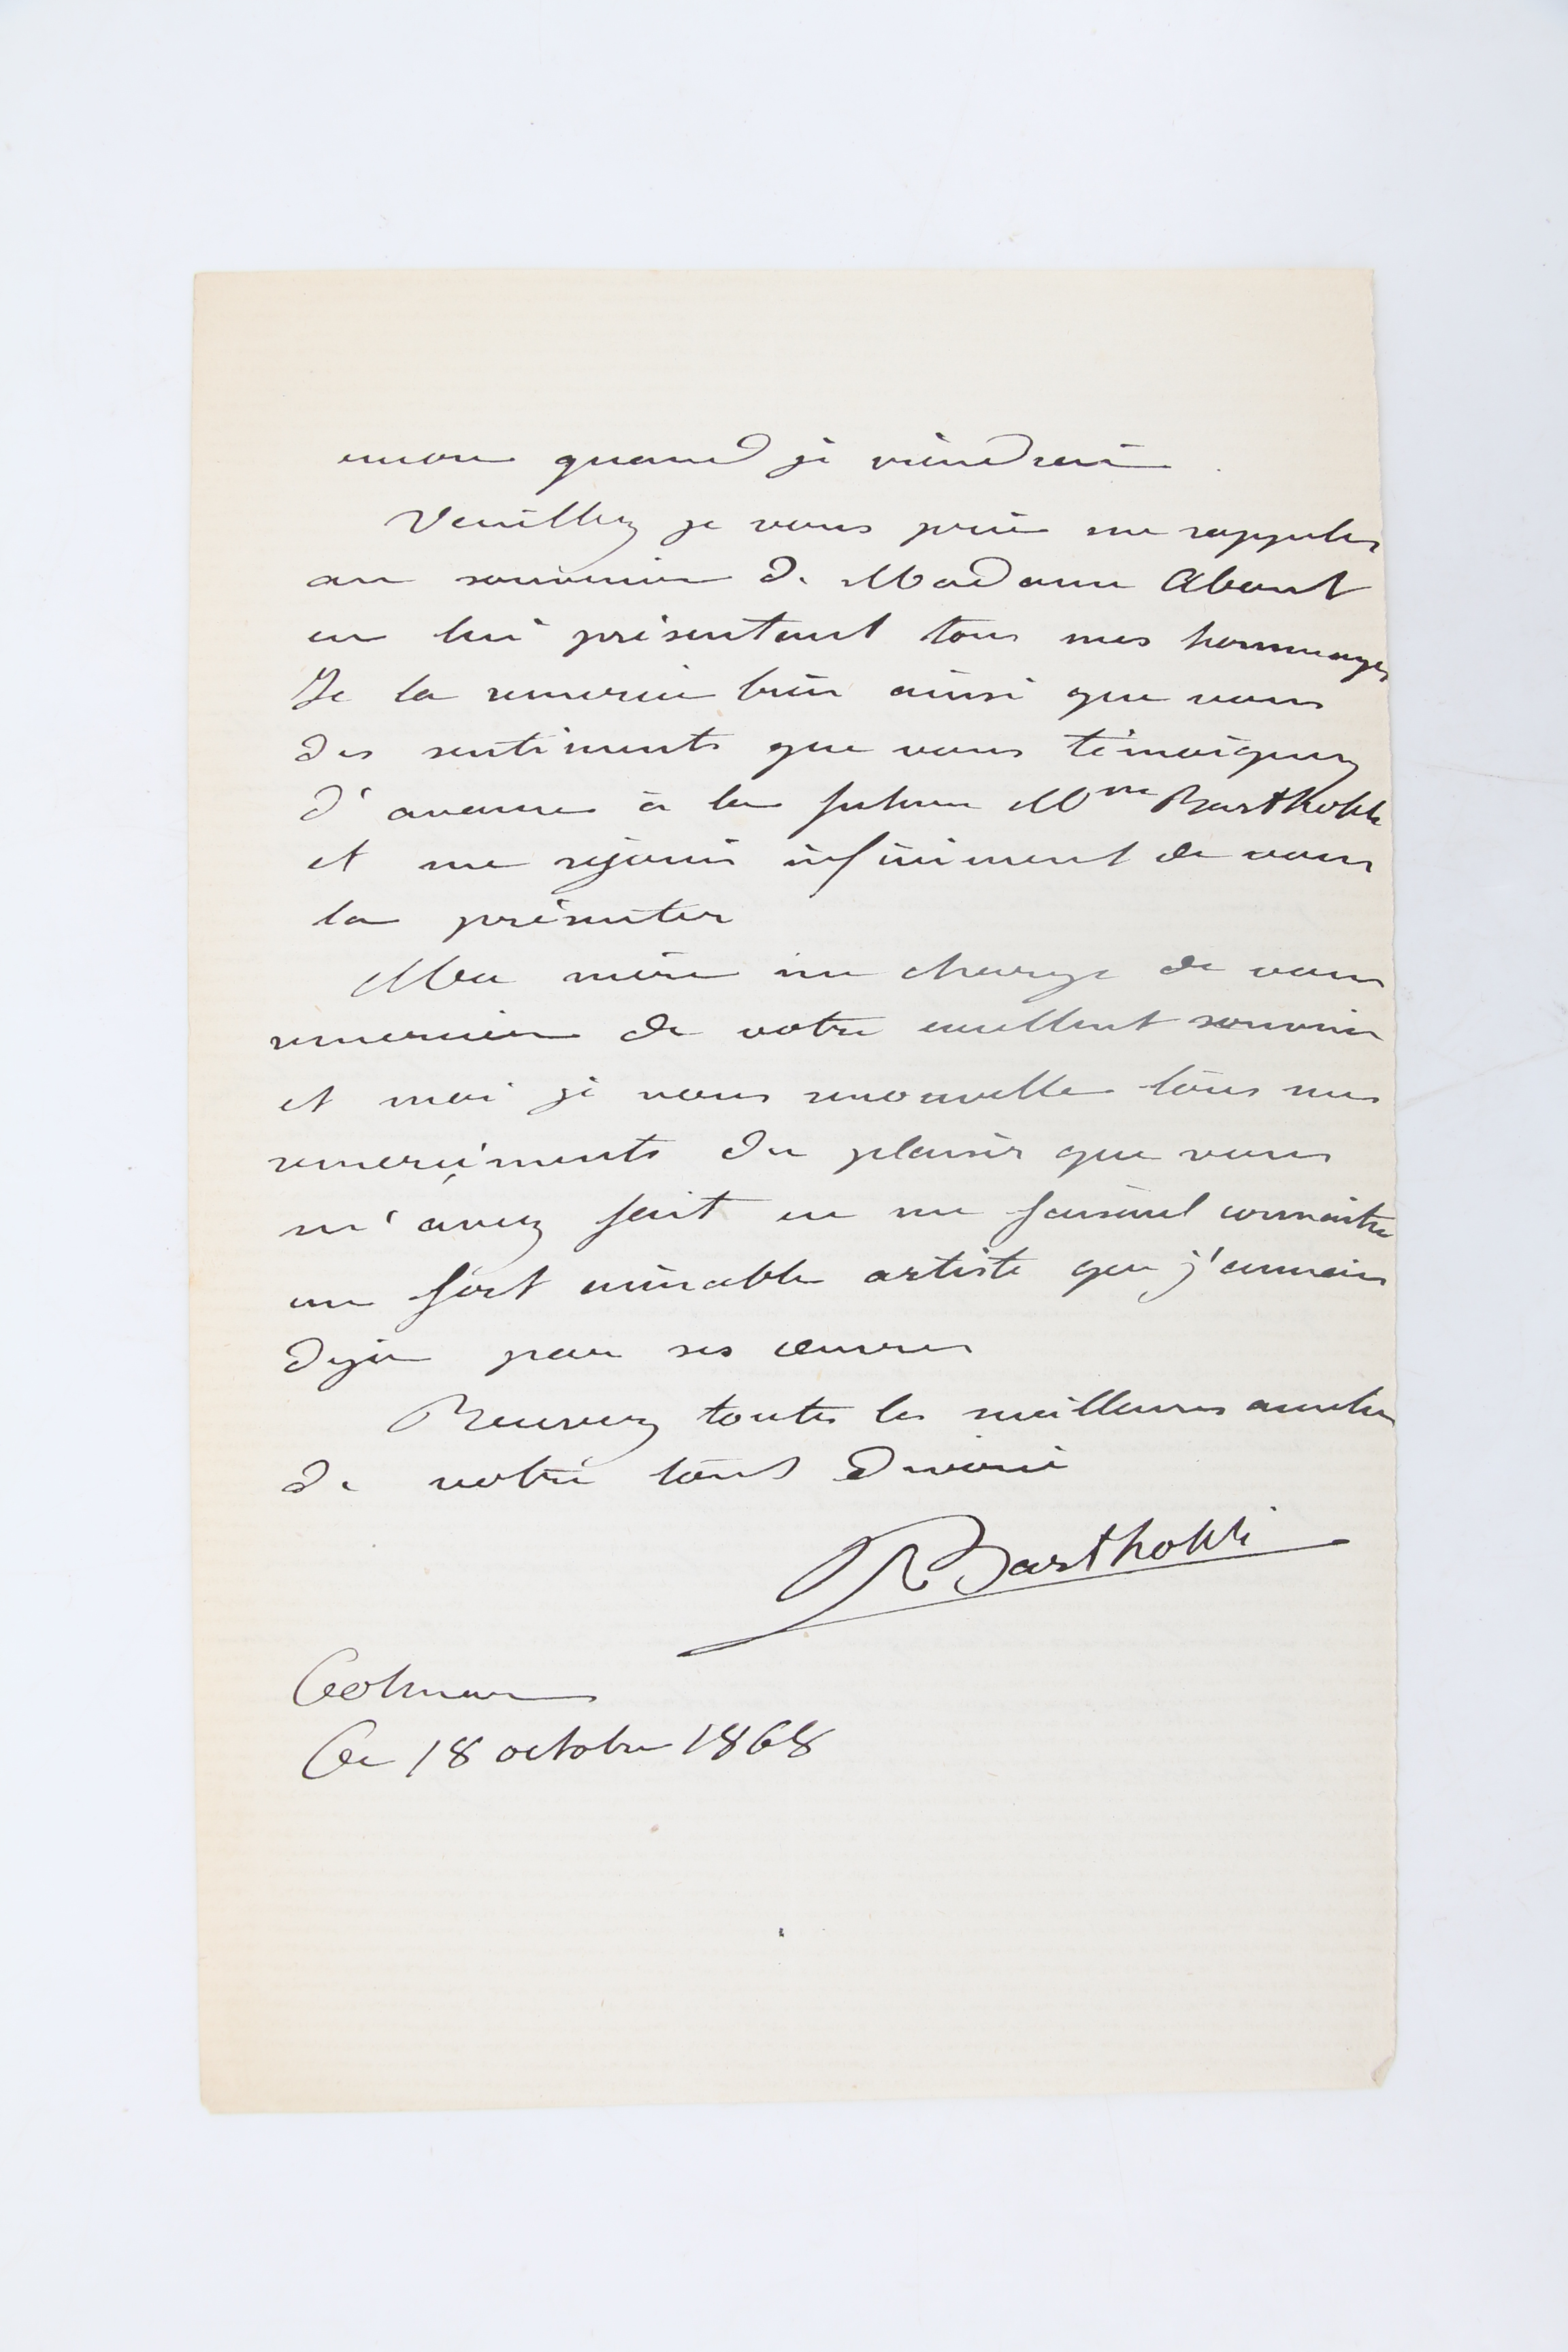 encore quand je viendrai
Veuillez je vous prie me rappeler
au souvenir de Madame About
en lui présentant tous mes hommages
Je la remercie bien ainsi que vous
des sentiments que vous témoignez
d'avance à la future Mme Bartholdi
et me rejouis infiniment de vous
la présenter
Ma mère me charge de vous
remercier de votre excellent souvenir
et moi je vous renouvelle tous mes
remerciments du plaisir que vous
m'avez fait en me faisant connaitre
un fort aimable artiste que j'connais
deja par ses œuvres
Recevez toutes les meilleures amities
de votre tout devoué
Bartholdi
Colmar
Ce 18 octobre 1868